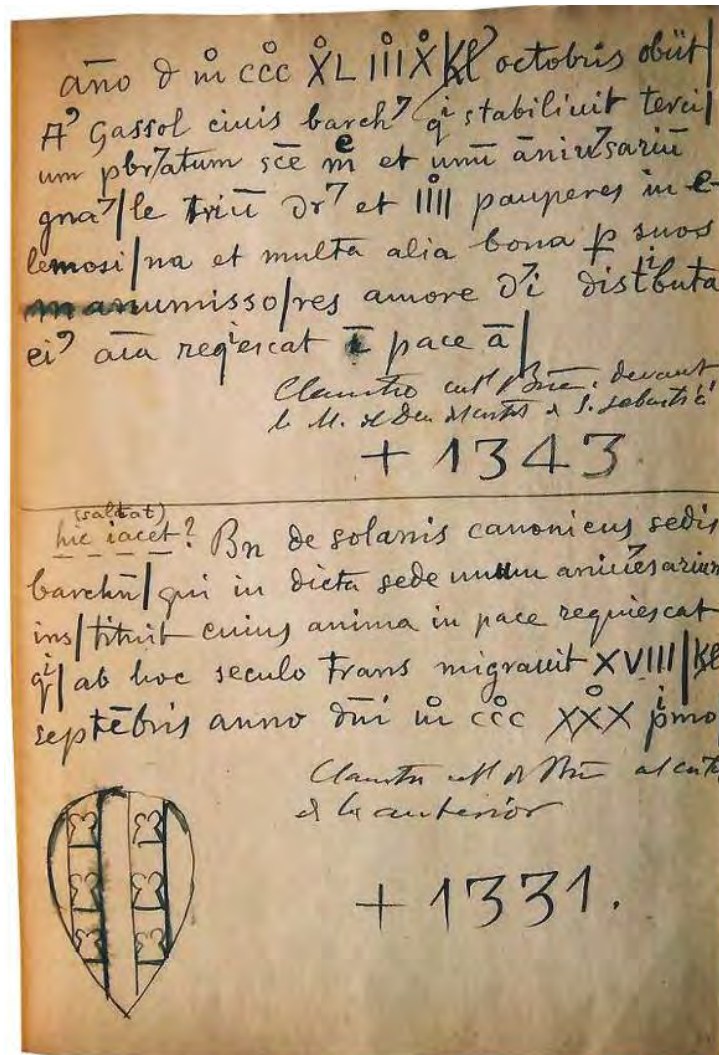 año d m ccc XL IIII X Kl octobris obiit|
Aꝰ Gassol ciuis barchꝰ qi stabiliuit terci|
um pbratum sce me et unū āniuꝰsariū
gnaꝰ|le triū drꝰ et IIII pauperes in e-
lemosi|na et multa alia bona p suos
manumisso|res amore dꝰi distibuta
eiꝰ aīa reqiescat ī pace ā|
Claustro devant
la M. de Deu S. Sebastiá
+ 1343.
(saltat)
hic iacet? Bn de solanis canonicus sedis
barchn̄| qui in dicta sede unum aniuꝰsarium
ins|tituit cuius anima in pace requiescat
qi| ab hoc seculo trans migrauit XVIII| Kl
septēbris anno dn̄i m ccc XXX pimo
Claustro
de la anterior
+ 1331.